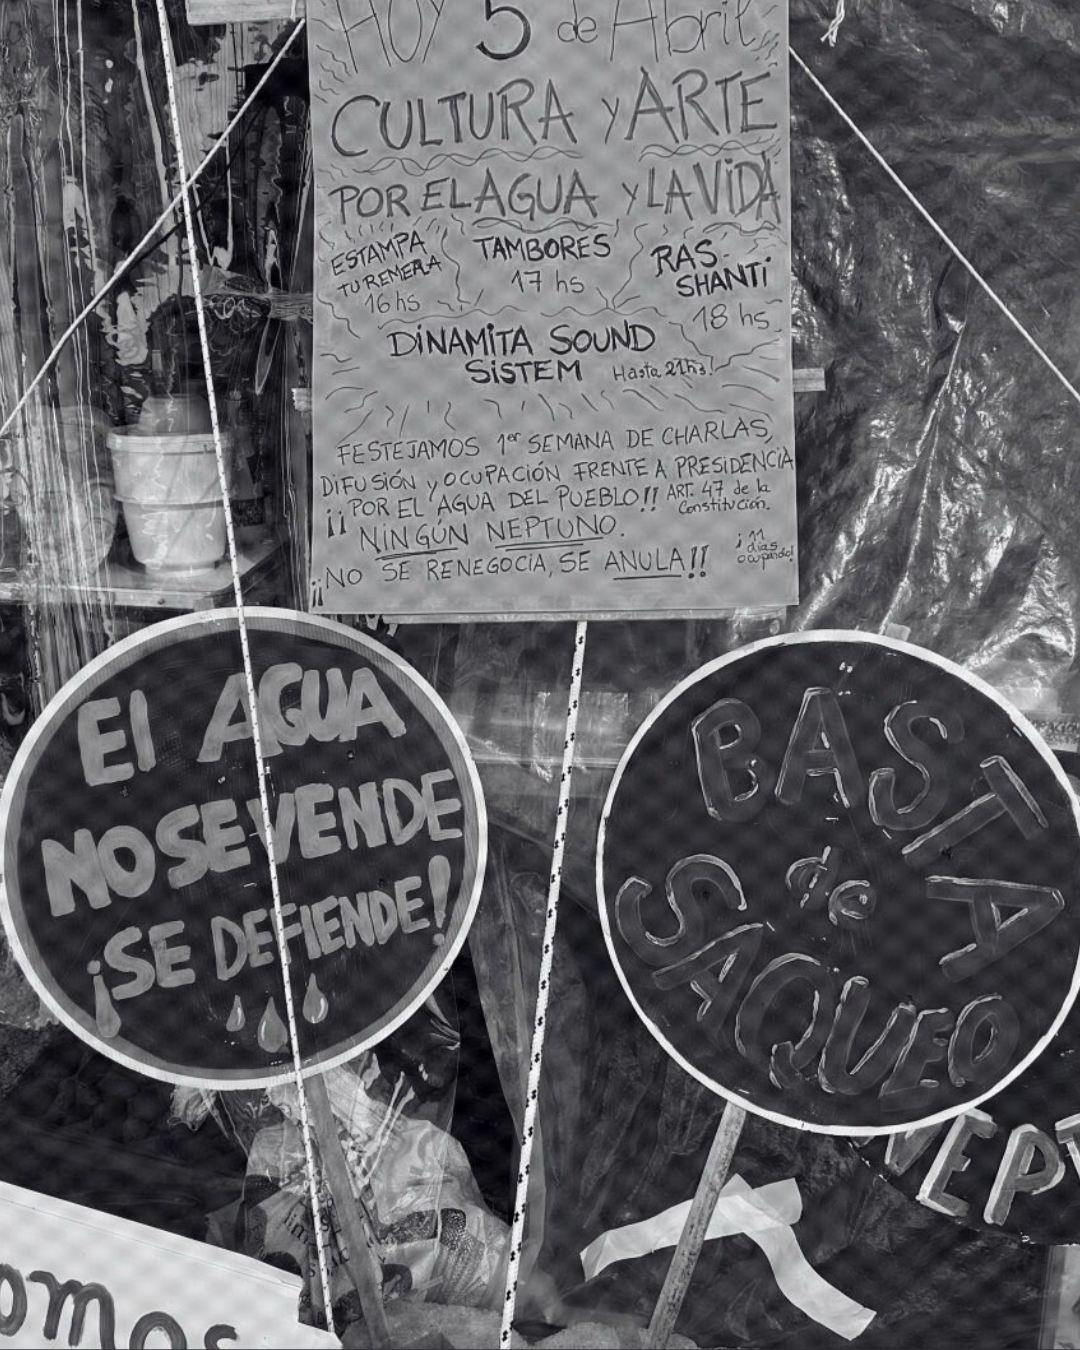 HOY 5 de Abril
CULTURA y ARTE
POR EL AGUA y LA VIDA
ESTAMPA
TU REMERA
16 hs
TAMBORES
17 hs
RAS
SHANTI
18 hs
DINAMITA SOUND
SISTEM Hasta 21hs!
FESTEJAMOS 1er SEMANA DE CHARLAS,
DIFUSIÓN y OCUPACIÓN FRENTE A PRESIDENCIA
¡¡POR EL AGUA DEL PUEBLO!! ART. 47 de la
Constitución.
NINGÚN NEPTUNO.
¡¡NO SE RENEGOCIA, SE ANULA!!
¡11
días
ocupando!
El AGUA
NO SE VENDE
¡SE DEFIENDE!
BASTA
de
SAQUEO
NEPT
omos